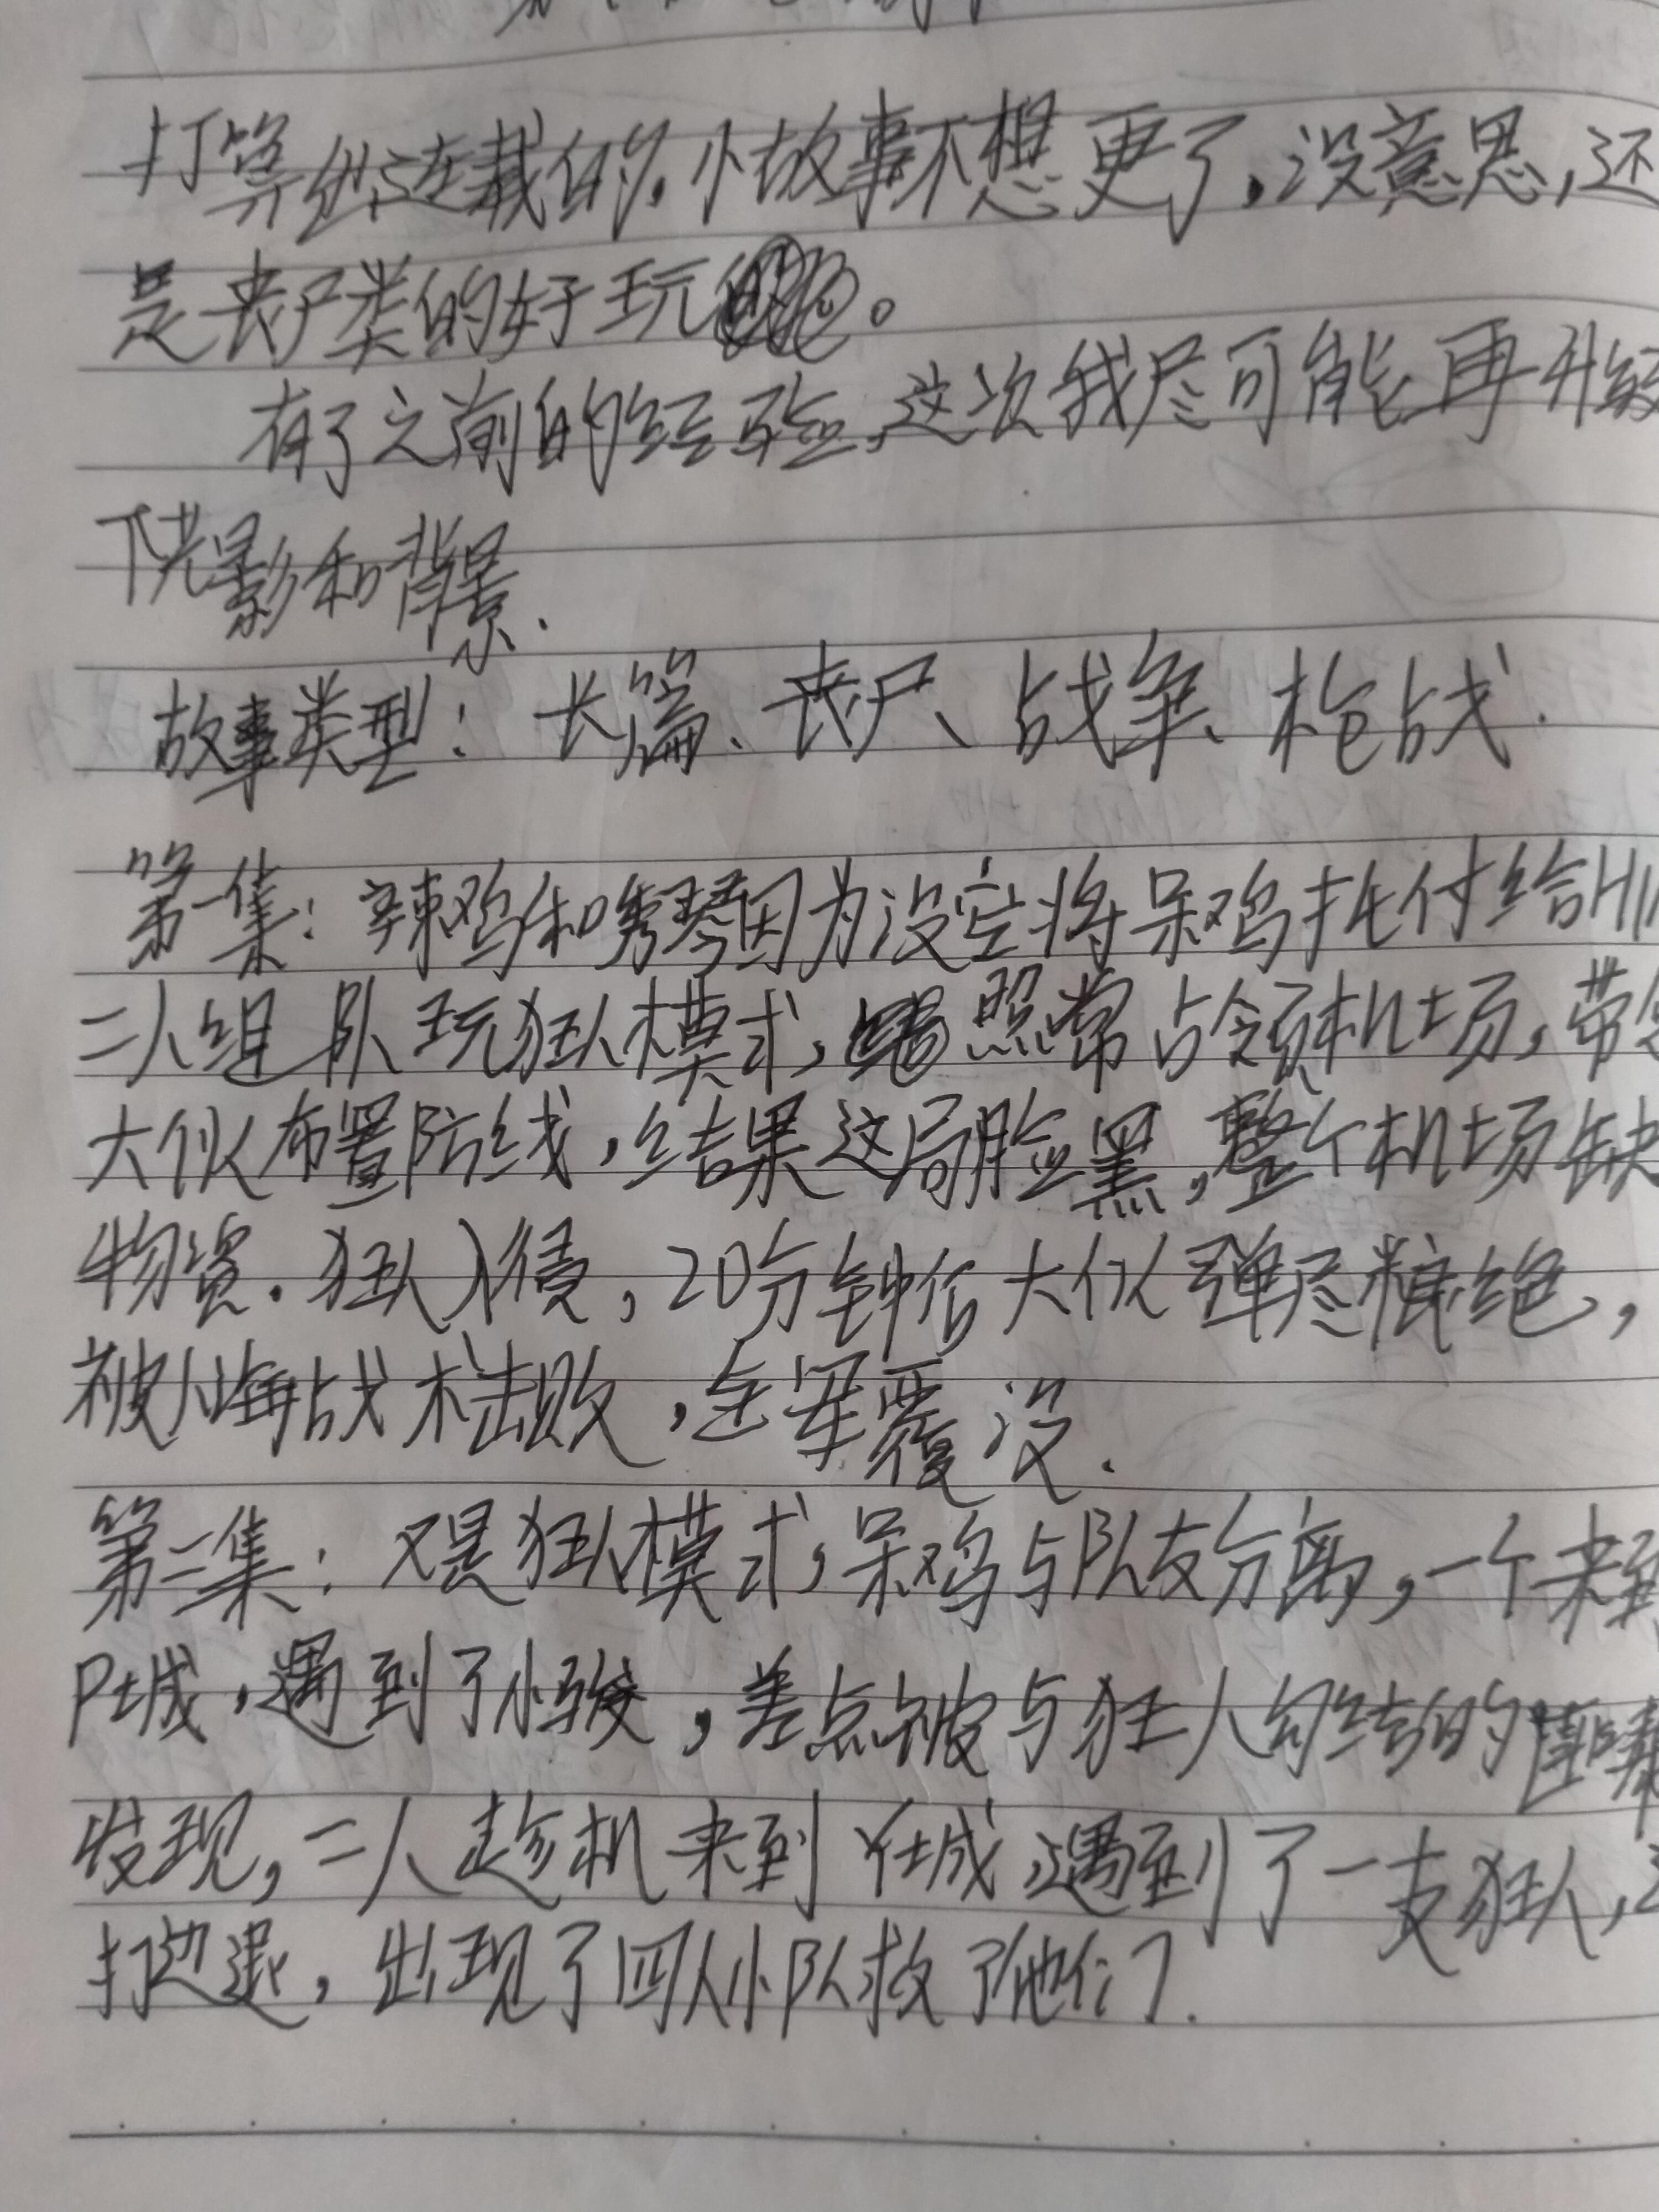 打算继续连载的小故事不想更了,没意思,还
是丧尸类的好玩。
有了之前的经验,这次我尽可能再升级
下光影和背景.
故事类型:长篇、丧尸、战争、枪战.
第一集:辣鸡和琴因为没空将呆鸡托付给
二人组队玩狂人模式,照常占领机场,带领
大伙布置防线,结果这局脸黑,整个机场缺
物资.狂人入侵,20分钟后大伙弹尽粮绝,
被人海战术击败,全军覆没.
第二集:又是狂人模式,呆鸡与队友分离,一个来到
P城,遇到了小骏,差点被与狂人勾结的
发现,二人趁机来到Y城,遇到了一支狂人,
打边退,出现了四人小队救了他们.